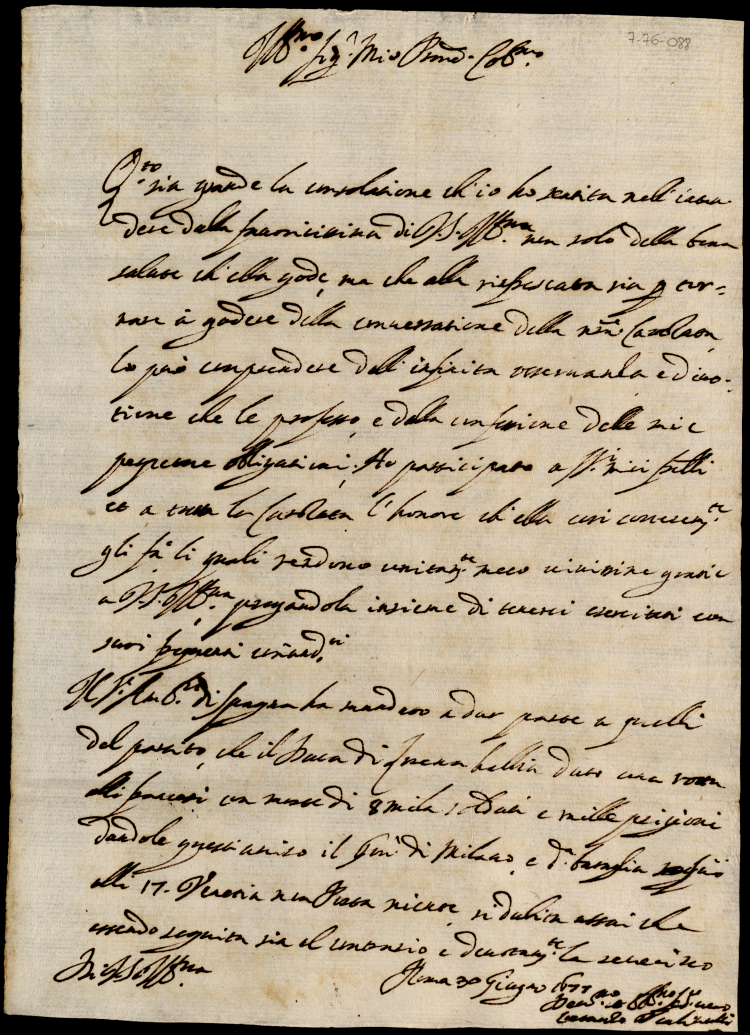 7-76-088
Ill.mo Sig.r Mio Pron. Col.mo
Q.to sia grande la consolatione ch'io ho sentita nell'inten-
dere dalla favoritissima di V.S. Ill.ma non solo della buona
salute ch'ella gode, ma che alla rinfrescata sia p tor-
nare à godere della conversatione della nra Camerata
lo può comprendere dall'infinita osservanza e divo-
tione che le professo, e dalla confessione delle mie
obligationi. Ho participato a SS.ri miei fratelli
et a tutta la Camerata l'honore ch'ella così cortesem.te
gli fa, li quali rendono unitam.te meco vivissime gratie
a V.S. Ill.ma pregandola insieme di tenerci esercitati con
suoi frequenti comand.ti
Il S.r Amb.re di Spagna ha mandato a dar parte a quelli
del partito, che il Duca di habbia dato una rotta
alli francesi con morte di 8 mila soldati e mille prigioni
dandole quest'aviso il Gov.re di Milano, e d.a battaglia seguì
alli 17. Venetia non porta niente, si dubita assai che
essendo seguita sia il contrario e devotam.te la riverisco
Di V.S. Ill.ma
Roma 30 Giugno 1677
Dev.mo et Obl.mo Ser.re vero